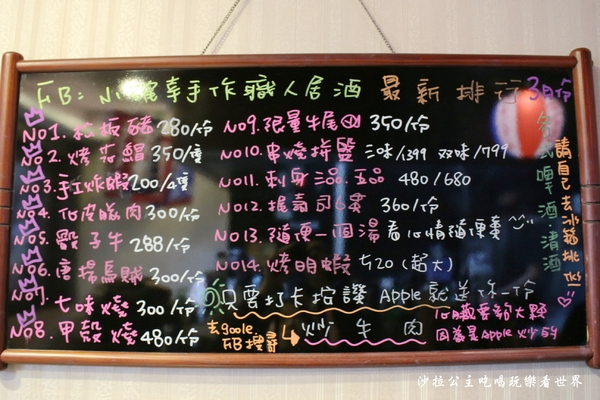 FB: 手作職人居酒 最新排行 3月份
NO1. 松板豬 280/份
NO2. 烤花龍 350/隻
NO3. 手工炸蝦 200/4隻
NO4. 化皮豚肉 300/份
NO5. 骰子牛 288/份
NO6. 唐揚烏賊 300/份
NO7. 七味燒 300/份
NO8. 甲殼燒 480/份
NO9. 限量牛尾 350/份
NO10. 串燒拼盤 三味/1399 双味/1799
NO11. 刺身三品.五品 480/680
NO12. 握壽司6貫 360/份
NO13. 隨便一個湯 看心情隨便賣
NO14. 烤明蝦 420 (超大)
只要打卡按讚 Apple就送你一份
去goole.
FB搜尋
炒牛肉
心臟要夠大顆
因為是Apple炒的
各式啤酒.清酒
請自己去冰箱挑
沙拉公主吃喝玩樂看世界